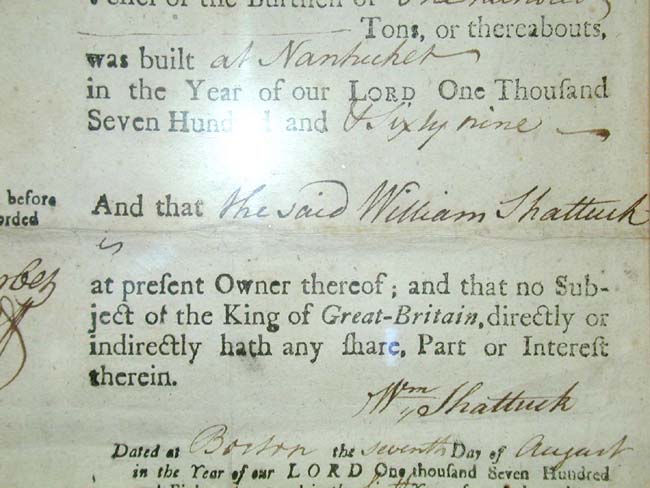 Vessel of the Burthen of One hundred
Tons, or thereabouts,
was built at Nantucket
in the Year of our LORD One Thouſand
Seven Hundred and & Sixty nine
before
orded
And that the said William Shattuck
is
at preſent Owner thereof; and that no Sub-
ject of the King of Great-Britain, directly or
indirectly hath any ſhare, Part or Intereſt
therein.
Wm Shattuck
Dated at Boston the seventh Day of August
in the Year of our LORD One thouſand Seven Hundred